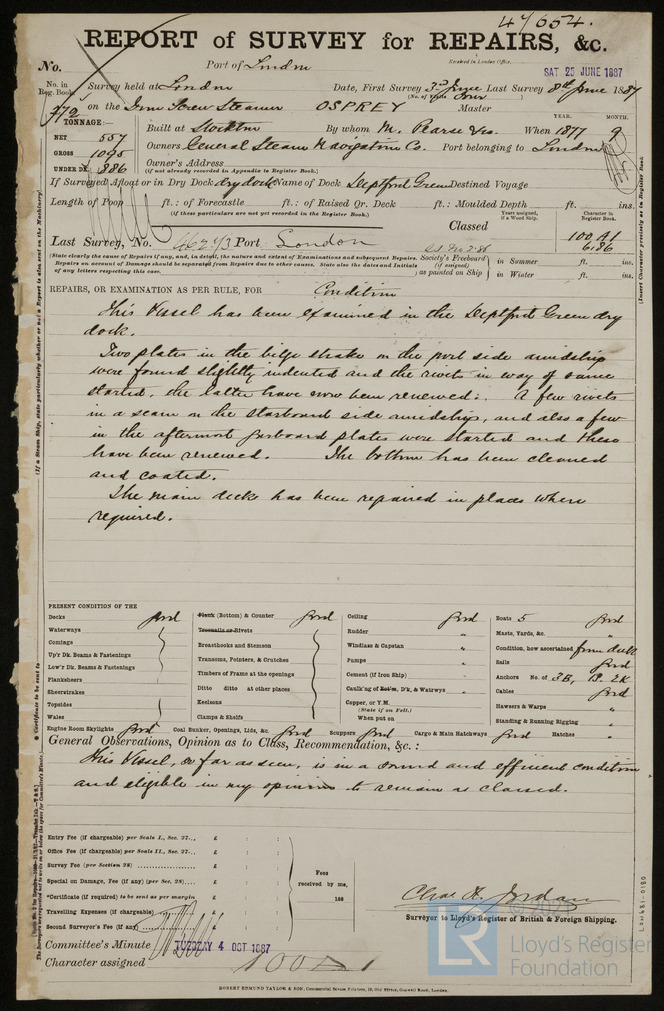 47654.
REPORT of SURVEY for REPAIRS, &c.
No.
Port of London
Received in London Office,
SAT 25 JUNE 1887
No. in Reg. Book.
Survey held at London
Date, First Survey 3rd June Last Survey 8th June 1887
(No. of Visits Four)
on the Iron Screw Steamer OSPREY Master
TONNAGE:—
NET 557
GROSS 1095
UNDER DK. 886
YEAR. MONTH.
Built at Stockton By whom M. Pearse & Co. When 1877 9
Owners General Steam Navigation Co. Port belonging to London
Owner's Address
(if not already recorded in Appendix to Register Book.)
If Surveyed Afloat or in Dry Dock dry dock Name of Dock Deptford Green Destined Voyage
Length of Poop ft.: of Forecastle ft.: of Raised Qr. Deck ft.: Moulded Depth ft. ins.
(If these particulars are not yet recorded in the Register Book.)
Years assigned, if a Wood Ship.
Character in Register Book.
Classed
100 A1
6,86
Last Survey, No. 46273 Port London
(State clearly the cause of Repairs if any, and, in detail, the nature and extent of Examinations and subsequent Repairs.
Repairs on account of Damage should be separated from Repairs due to other causes. State also the dates and Initials
of any letters respecting this case.
Society's Freeboard (if assigned) as painted on Ship
in Summer ft. ins.
in Winter ft. ins.
REPAIRS, OR EXAMINATION AS PER RULE, FOR Condition
This Vessel has been examined in the Deptford Green dry
dock.
Two plates in the bilge strake on the port side amidships
were found slightly indented and the rivets in way of same
started, the latter have now been renewed. A few rivets
in a seam on the starboard side amidships, and also a few
in the aftermost garboard plates were started and these
have been renewed. The bottom has been cleaned
and coated.
The main deck has been repaired in places where
required.
PRESENT CONDITION OF THE
Decks good
Waterways
Comings
Up'r Dk. Beams & Fastenings
Low'r Dk. Beams & Fastenings
Planksheers
Sheerstrakes
Topsides
Wales
Plank (Bottom) & Counter good
Treenails or Rivets
Breasthooks and Stemson
Transoms, Pointers, & Crutches
Timbers of Frame at the openings
Ditto ditto at other places
Keelsons
Clamps & Shelfs
Ceiling good
Rudder "
Windlass & Capstan "
Pumps "
Cement (if Iron Ship) "
Caulk'ng of Bot'm, D'k, & Watrwys "
Copper, or Y.M.
(State if on Felt.)
When put on
Boats 5 good
Masts, Yards, &c. "
Condition, how ascertained from deck
Sails good
Anchors No. of 3B, 1S. 2K
Cables good
Hawsers & Warps "
Standing & Running Rigging "
Engine Room Skylights good Coal Bunker, Openings, Lids, &c. good Scuppers good Cargo & Main Hatchways good Hatches "
General Observations, Opinion as to Class, Recommendation, &c. :
This Vessel, so far as seen, is in a sound and efficient condition
and eligible in my opinion to remain as classed.
Entry Fee (if chargeable) per Scale I., Sec. 27... £ : :
Office Fee (if chargeable) per Scale II., Sec. 27... £ : :
Survey Fee (per Section 28) £ : :
Special on Damage, Fee (if any) (per Sec. 28).... £ : :
*Certificate (if required) to be sent as per margin £ : :
Travelling Expenses (if chargeable) £ : :
Second Surveyor's Fee (if any) £ : :
Fees
received by me,
188
Chas. H. Jordan
Surveyor to Lloyd's Register of British & Foreign Shipping.
Committee's Minute TUESDAY 4 OCT 1887
Character assigned 100 A 1
LR
Lloyd's Register
Foundation
ROBERT EDMUND TAYLOR & SON, Commercial Steam Printers, 19, Old Street, Goswell Road, London.